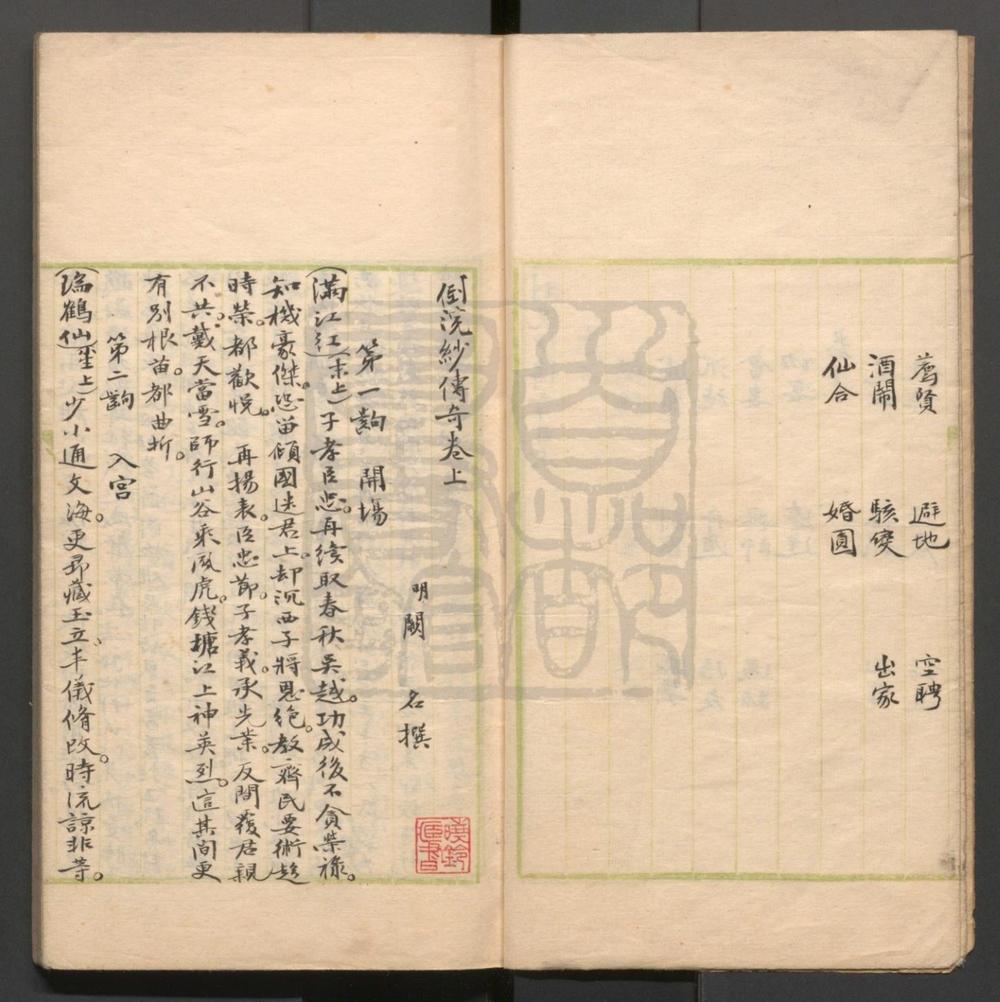 薦賢 避地 空聘
酒鬧 駭變 出家
仙合 婚圓
倒浣紗傳奇卷上
明闕 名撰
第一齣 開場
(滿江紅)(末上)子孝臣忠。再續取春秋吳越。功成後不貪榮祿。
知機豪傑。怨留傾國迷君上。却沉西子將恩絶。教齊民要術趁
時榮。都歡悅。 再揚表。臣忠節。子孝義。承先業。反間覆君親
不共。戴天當雪。師行山谷乘風虎。錢塘江上神英烈。這其間更
有別根苗。都曲折。
第二齣 入宮
(瑞鶴仙)(生上)少小通文海。更昂藏玉立丰儀脩改。時流諒非等。
曉鈴
匡書